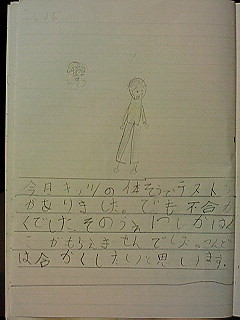 今日キッツの体そうでテスト
がありました。でも不合か
くでした。そのうえ
がもらえませんでした。
は合かくしたいと思います。